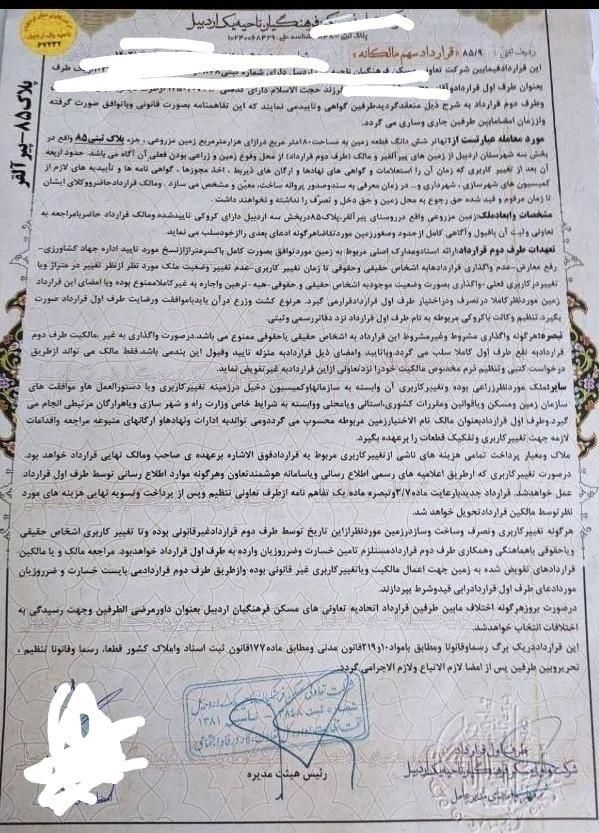 فرهنگیان ناحیه یک اردبیل
۶۷۴۳۲
ردیف ثبتی : ۸۵/۹ «قرارداد سهم مالکانه»
این قرارداد فیمابین شرکت تعاونی
بعنوان طرف اول قرارداد و حجت الاسلام دارای
وطرف دوم قرارداد به شرح ذیل منعقد گردید طرفین گواهی وتاییدمی نمایند که این تفاهمنامه بصورت قانونی وباتوافق صورت گرفته
واززمان امضامابین طرفین جاری وساری می گردد.
مورد معامله عبارتست از: تهاتر شش دانگ قطعه زمین به مساحت ۱۸۰متر مربع درازای هزارمترمربع زمین مزروعی ، جزء پلاک ثبتی۸۵ واقع در
بخش سه شهرستان اردبیل از زمین های پیرآلقیر و مالک (طرف دوم قرارداد) از محل وقوع زمین و زراعی بودن فعلی آن آگاه می باشد. حدود اربعه
آن بعد از تغییر کاربری که زمان آن را استعلامات و گواهی های نهادها و ارگان های ذیربط ، اخذ مجوزها ، گواهی نامه ها و تاییدیه های لازم از
کمیسیون های شهرسازی ، شهرداری و... در زمان معرفی به سندوصدور پروانه ساخت، معیّن و مشخص می سازد . ومالک قراردادحاضرووکلای ایشان
تا زمان مرقوم و قید شده حق رجوع به محل زمین و حق دخل و تصرّف را نداشته و نخواهند داشت .
مشخصات وابعادملک: زمین مزروعی واقع درروستای پیرآلقیر،پلاک۸۵دربخش سه اردبیل دارای کروکی تاییدشده ومالک قرارداد حاضربامراجعه به
تعاونی وثبت آن باقبول وآگاهی کامل ازحدود وصغورزمین موردتقاضاهرگونه ادعای بعدی راازخودسلب می نماید.
تعهدات طرف دوم قرارداد: ارائه اسنادومدارک اصلی مربوط به زمین موردتوافق بصورت کامل باکسرمترازازنسخ مورد تایید اداره جهاد کشاورزی-
رفع معارض-عدم واگذاری قراردادهابه اشخاص حقیقی وحقوقی تا زمان تغییر کاربری-عدم تغییر وضعیت ملک مورد نظر ازنظر تغییر در متراژ ویا
تغییردرکاربری فعلی -واگذاری بصورت وضعیت موجودبه اشخاص حقیقی و حقوقی -هبه -ترهین واجاره به غیرکاملاممنوع بوده وباامضای این قرارداد
زمین موردنظرکاملا درتصرف ودراختیار طرف اول قراردادقرارمی گیرد. هرنوع کشت وزرع درآن بایدباموافقت ورضایت طرف اول قرارداد صورت
بگیرد. تنظیم وکالت باکروکی مربوطه به نام طرف اول قرارداد نزد دفاتررسمی وثبتی.
تبصره: هرگونه واگذاری مشروط وغیرمشروط این قرارداد به اشخاص حقیقی یاحقوقی ممنوع می باشد.درصورت واگذاری به غیر ،مالکیت طرف دوم
قراردادبه نفع طرف اول کاملا سلب می گردد.وباتایید وامضای ذیل قراردادبه منزله تایید وقبول این بندمی باشد.فقط مالک می تواند ازطریق
درخواست کتبی وتنظیم فرم مخصوص مالکیت خودرا نزدتعاونی ازاین قراردادبه غیرتفویض نماید.
سایر: ملک موردنظرزراعی بوده وتغییرکاربری آن وابسته به سازمانهاوکمیسیون دخیل درزمینه تغییرکاربری وبا دستورالعمل هاو موافقت های
سازمان زمین ومسکن وباقوانین ومقررات کشوری،استانی ویامحلی ووابسته به شرایط خاص وزارت راه و شهر سازی ویاهرارگان مرتبطی انجام می
گیرد.وطرف اول قراردادبعنوان مالک نام الاختیارزمین مربوطه محسوب می گرددومی تواندبه ادارات ونهادهاو ارگانهای متبوعه مراجعه واقدامات
لازمه جهت تغییرکاربری وتفکیک قطعات را برعهده بگیرد.
ملاک ومعیار پرداخت تمامی هزینه های ناشی از تغییرکاربری مربوط به قراردادفوق الاشاره برعهده ی صاحب ومالک نهایی قرارداد خواهد بود.
درصورت تغییرکاربری که ازطریق اعلامیه های رسمی اطلاع رسانی وباسامانه هوشمندتعاون وهرگونه موارد اطلاع رسانی توسط طرف اول قرارداد
عمل خواهدشد. قرارداد جدیدبارعایت ماده۳/۷وتبصره ماده یک تفاهم نامه ازطرف تعاونی تنظیم وپس از پرداخت وتسویه نهایی هزینه های مورد
نظرتوسط مالکین قراردادتحویل خواهد شد.
هرگونه تغییرکاربری وتصرف وساخت وسازدرزمین موردنظرازاین تاریخ توسط طرف دوم قراردادغیرقانونی بوده وتا تغییر کاربری اشخاص حقیقی
ویاحقوقی باهماهنگی وهمکاری طرف دوم قراردادمستلزم تامین خسارت وضرروزیان وارده به طرف اول قرارداد خواهدبود. مراجعه مالک و یا مالکین
قراردادهای تفویض شده به زمین جهت اعمال مالکیت ویاتغییرکاربری غیر قانونی بوده وازطریق طرف دوم قراردادمی بایست خسارت و ضرروزیان
موردادعای طرف اول قراردادرابی قیدوشرط بپردازند.
درصورت بروزهرگونه اختلاف مابین طرفین قرارداد اتحادیه تعاونی های مسکن فرهنگیان اردبیل بعنوان داورمرضی الطرفین وجهت رسیدگی به
اختلافات انتخاب خواهدشد.
این قرارداددریک برگ رسماوقانونا ومطابق بامواد۱۰و۲۱۹قانون مدنی ومطابق ماده۱۷۷قانون ثبت اسناد واملاک کشور قطعا، رسما وقانونا تنظیم ،
تحریروبین طرفین پس از امضا لازم الاتباع ولازم الاجرامی گردد.
پلاک۸۵-پیرآلقیر
شماره ثبت ۳۸۴۸ تاسیس ۱۳۸۱
رئیس هیئت مدیره
طرف اول قرارداد
شرکت تعاونی مسکن فرهنگیان ناحیه یک اردبیل
مدیرعامل